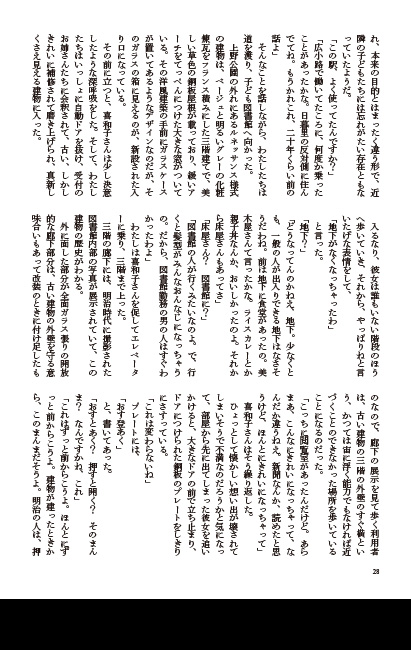 れ、本来の目的とはまったく違う形で、近
隣の子どもたちには忘れがたい存在ともな
っていたようだ。
「この駅、よく使ってたんですか?」
「広小路で働いてたころに、何度か乗った
ことがあったかな。日暮里の反対側に住ん
でてね。もうかれこれ、二十年くらい前の
話よ」
そんなことを話しながら、わたしたちは
道を渡り、子ども図書館へ向かった。
上野公園の外れにあるルネッサンス様式
の建物は、ベージュと明るいグレーの化粧
煉瓦をフランス積みにした三階建てで、美
しい草色の銅板屋根が載っており、緩いア
ーチをてっぺんにつけた大きな窓がついて
いる。その洋風建築の手前にガラスケース
が置いてあるようなデザインなのだが、そ
のガラスの箱に見えるのが、新設された入
り口になっている。
その前に立つと、喜和子さんは少し決意
したような深呼吸をした。そして、わたし
たちはいっしょに自動ドアを抜け、受付の
お姉さんたちに会釈されて、古い、しかし
きれいに補修されて磨き上げられ、真新し
くさえ見える建物に入った。
入るなり、彼女は誰もいない階段のほう
へ歩いていき、それから、やっぱりねと言
いたげな表情をして、
「地下がなくなっちゃったわ」
と言った。
「地下?」
「どうなってんのかねえ、地下。少なくと
も、一般の人が出入りできる地下はなさそ
うだわね。前は地下に食堂があったの。美
木屋さんて言ったかな。ライスカレーとか
親子丼なんか、おいしかったのよ。それか
ら床屋さんもあってさ」
「床屋さん? 図書館に?」
「図書館の人が行くみたいなのよ。で、行
くと髪型がみんなおんなじになっちゃう
の。だから、図書館勤務の男の人はすぐわ
かったわよ」
わたしは喜和子さんを促してエレベータ
ーに乗り、三階まで上った。
三階の廊下には、明治時代に撮影された
図書館内部の写真が展示されていて、この
建物の歴史がわかる。
外に面した部分が全面ガラス張りの開放
的な廊下部分は、古い建物の外壁を守る意
味合いもあって改装のときに付け足したも
のなので、廊下の展示を見て歩く利用者
は、古い建物の三階の外壁のすぐ横とい
う、かつては宙に浮く能力でもなければ近
づくことのできなかった場所を歩いている
ことになるのだった。
「こっちに閲覧室があったんだけど、あら
まあ、こんなにきれいになっちゃって、な
んだか違うねえ。新聞なんか、読めたと思
うけど。ほんとにきれいになっちゃって」
喜和子さんはそう繰り返した。
ひょっとして懐かしい想い出が壊されて
しまいそうで不満なのだろうかと気になっ
て、部屋から先に出てしまった彼女を追い
かけると、大きなドアの前で立ち止まり、
ドアにつけられた銅板のプレートをしきり
にさすっている。
「これは変わらないね」
プレートには、
「おす登あく」
と、書いてあった。
「おすとあく? 押すと開く? そのまん
ま? なんですかね、これ」
「これはずっと前からこうよ。ほんとにず
っと前からこうよ。建物が建ったときか
ら、このまんまだそうよ。明治の人は、押
28